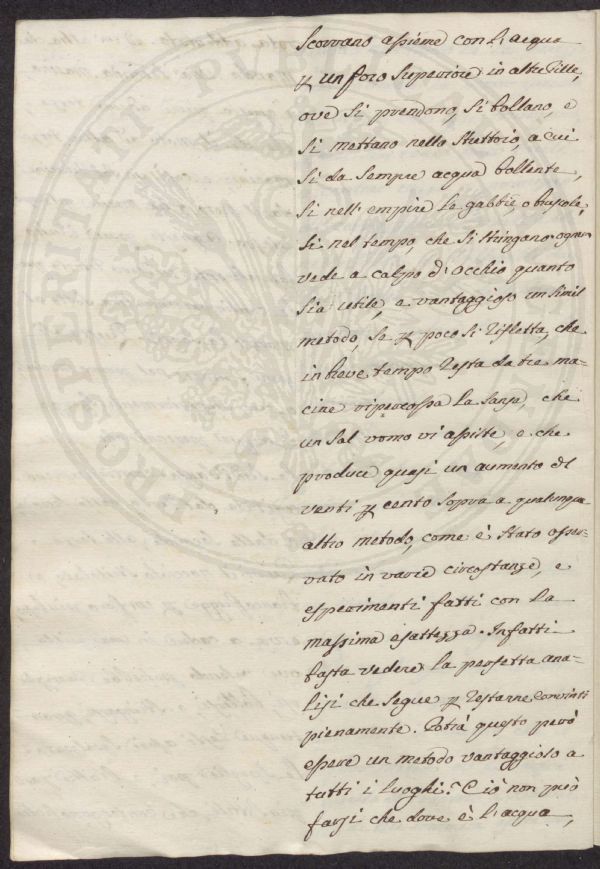 Scorrano assieme con l'acqua
ꝑ un foro superiore in altre Pille,
ove si prendono, si bollano, e
si mettano nello Strettoio, a cui
si da sempre acqua bollente,
si nell'empire le gabbie, o bruscole,
si nel tempo, che si stringano. ognun
vede a colpo d'occhio quanto
sia utile, e vantaggioso un simil
metodo, se ꝑ poco si rifletta, che
in breve tempo resta da tre ma-
cine ripercossa la sansa, che
un sol uomo vi assiste, e che
produce quasi un aumento del
venti ꝑ cento sopra a qualunque
altro metodo, come è stato osser-
vato in varie circostanze, e
esperimenti fatti con la
massima esattezza. Infatti
basta vedere la perfetta ana-
lisi che segue ꝑ restarne convinti
pienamente. Potrà questo però
essere un metodo vantaggioso a
tutti i luoghi? Ciò non può
farsi che dove è l'acqua,
PROSPERITATI PUBLICAE